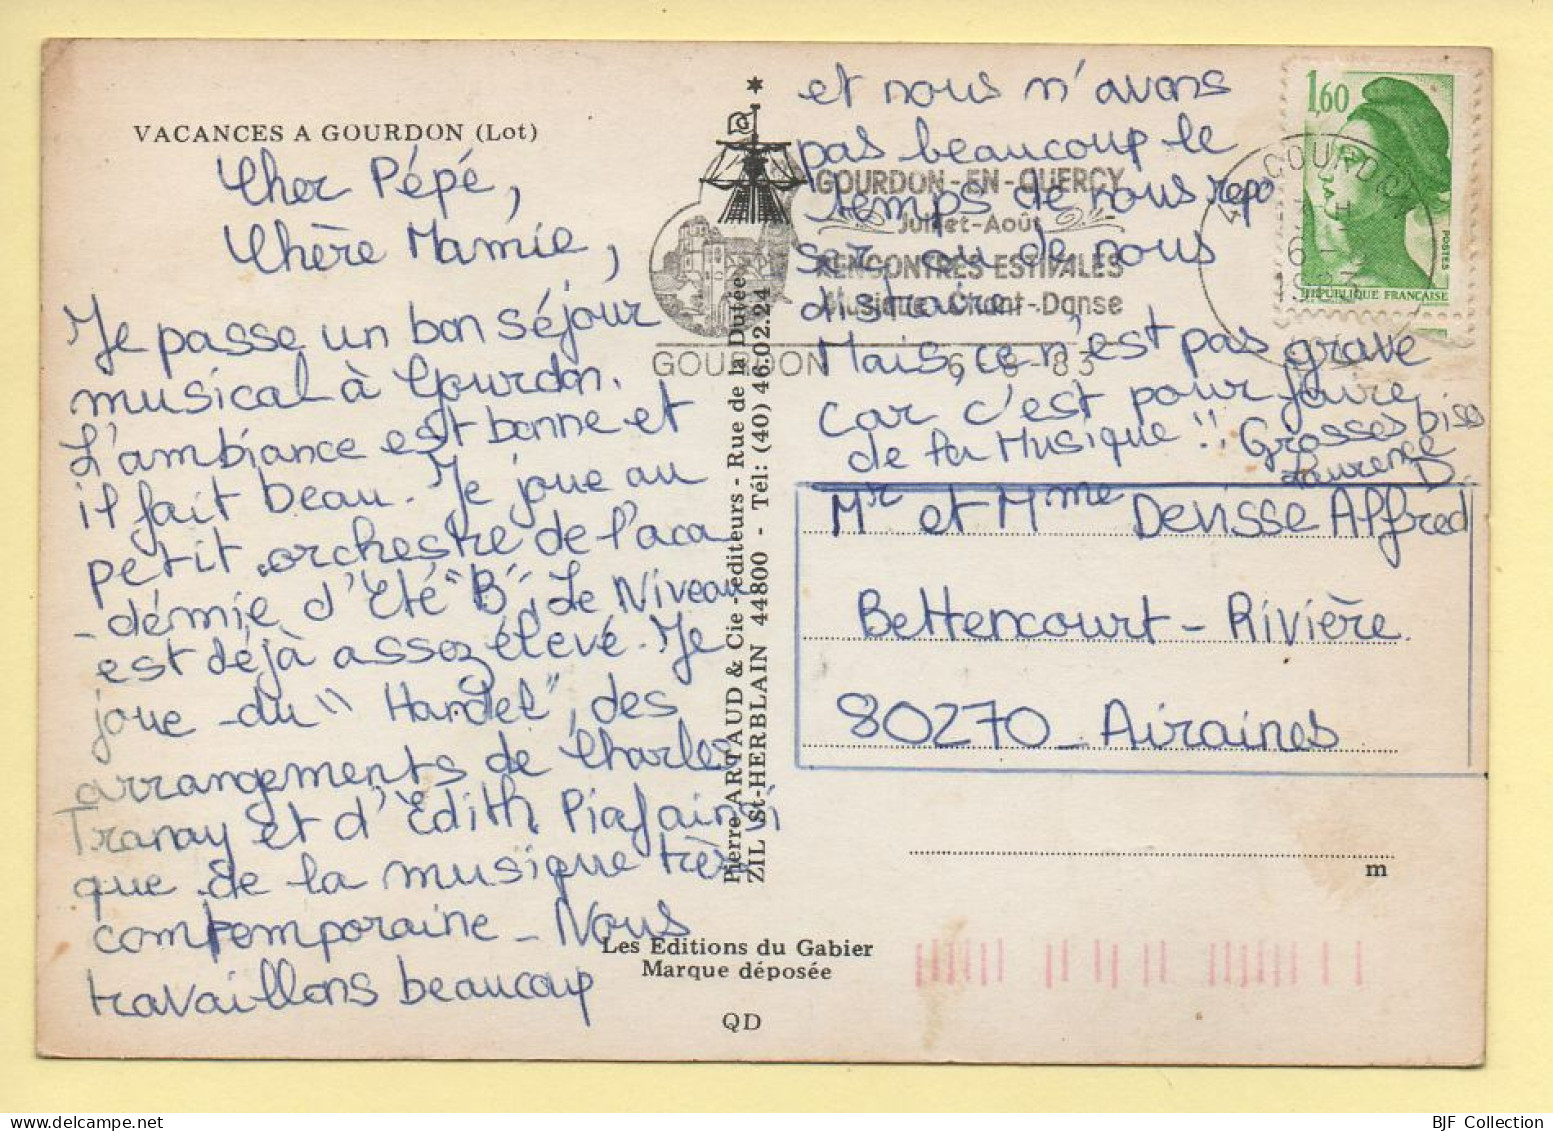 VACANCES A GOURDON (Lot)
Cher Pépé,
Chère Mamie,
Je passe un bon séjour
musical à Gourdon.
L'ambiance est bonne et
il fait beau. Je joue au
petit orchestre de l'aca
-démie d'Eté "B". Le Niveau
est déjà assez élevé. Je
joue du "Handel", des
arrangements de Charles
Tranay et d'Edith Piaf ainsi
que de la musique très
comtemporaine - Nous
travaillons beaucoup
et nous n'avons
pas beaucoup le
temps de nous repo
ser, ou de nous
distraire,
Mais, ce n'est pas grave
car c'est pour faire
de la Musique!! Grosses biss
Laurence D.
Mr et Mme Devisse Alfred
Bettencourt-Rivière.
80270 - Airaines
1,60
POSTES
REPUBLIQUE FRANÇAISE
GOURDON
1983
GOURDON-EN-QUERCY
Juillet-Août
RENCONTRES ESTIVALES
Musique-Chant-Danse
GOURDON 6-8-83
Pierre ARTAUD & Cie - éditeurs - Rue de la Dutée
ZIL St-HERBLAIN 44800 - Tél: (40) 46.02.24
m
Les Editions du Gabier
Marque déposée
QD
BJF Collection